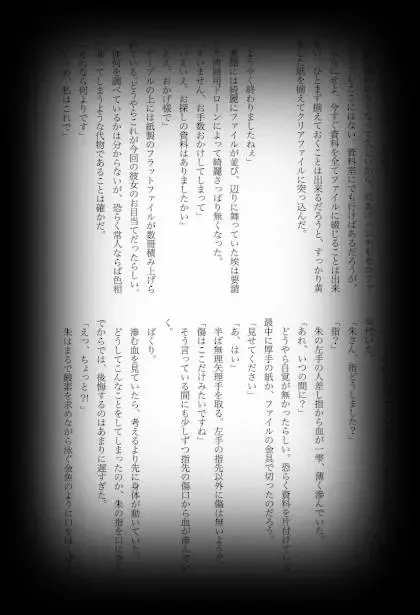 いうことはない。資料室にでも行けばあるだろうが、
せよ、今すぐ資料を全てファイルに綴じることは出来
い、ひとまず揃えておくことは出来るだろうと、すっかり黄
紙を揃えてクリアファイルに突っ込んだ。
ようやく終わりましたねぇ」
には綺麗にファイルが並び、辺りに舞っていた埃は要請
ドローンによって綺麗さっぱり無くなった。
すいません、お手数おかけしてしまって」
いいえ。お探しの資料はありましたかい」
ええ、おかげ様で」
ーブルの上には紙製のフラットファイルが数冊積み上げら
ている。どうやらこれが今回の彼女のお目当てだったらしい。
体何を調べているかは分からないが、恐らく常人ならば色相
ってしまうような代物であることは確かだ。
れなら何よりです」
、私はこれで」
「朱さん、指どうしました？」
「指？」
朱の左手の人差し指から血が一雫、薄く滲んでいた。
「あれ、いつの間に？」
どうやら自覚が無かったらしい。恐らく資料を片付けてい
最中に厚手の紙か、ファイルの金具で切ったのだろう。
「見せてください」
「あ、はい」
半ば無理矢理手を取る。左手の指先以外に傷は無いよう
「傷はここだけみたいですね」
そう言っている間にも少しずつ指先の傷口から血が滲んでい
く。
ぱくり。
滲む血を見ていたら、考えるより先に身体が動いていた。
どうしてこんなことをしてしまったのか、朱の指を口に
でからでは、後悔するのはあまりに遅すぎた。
「えっ、ちょっと？！」
朱はまるで酸素を求めながら泳ぐ金魚のように口をは